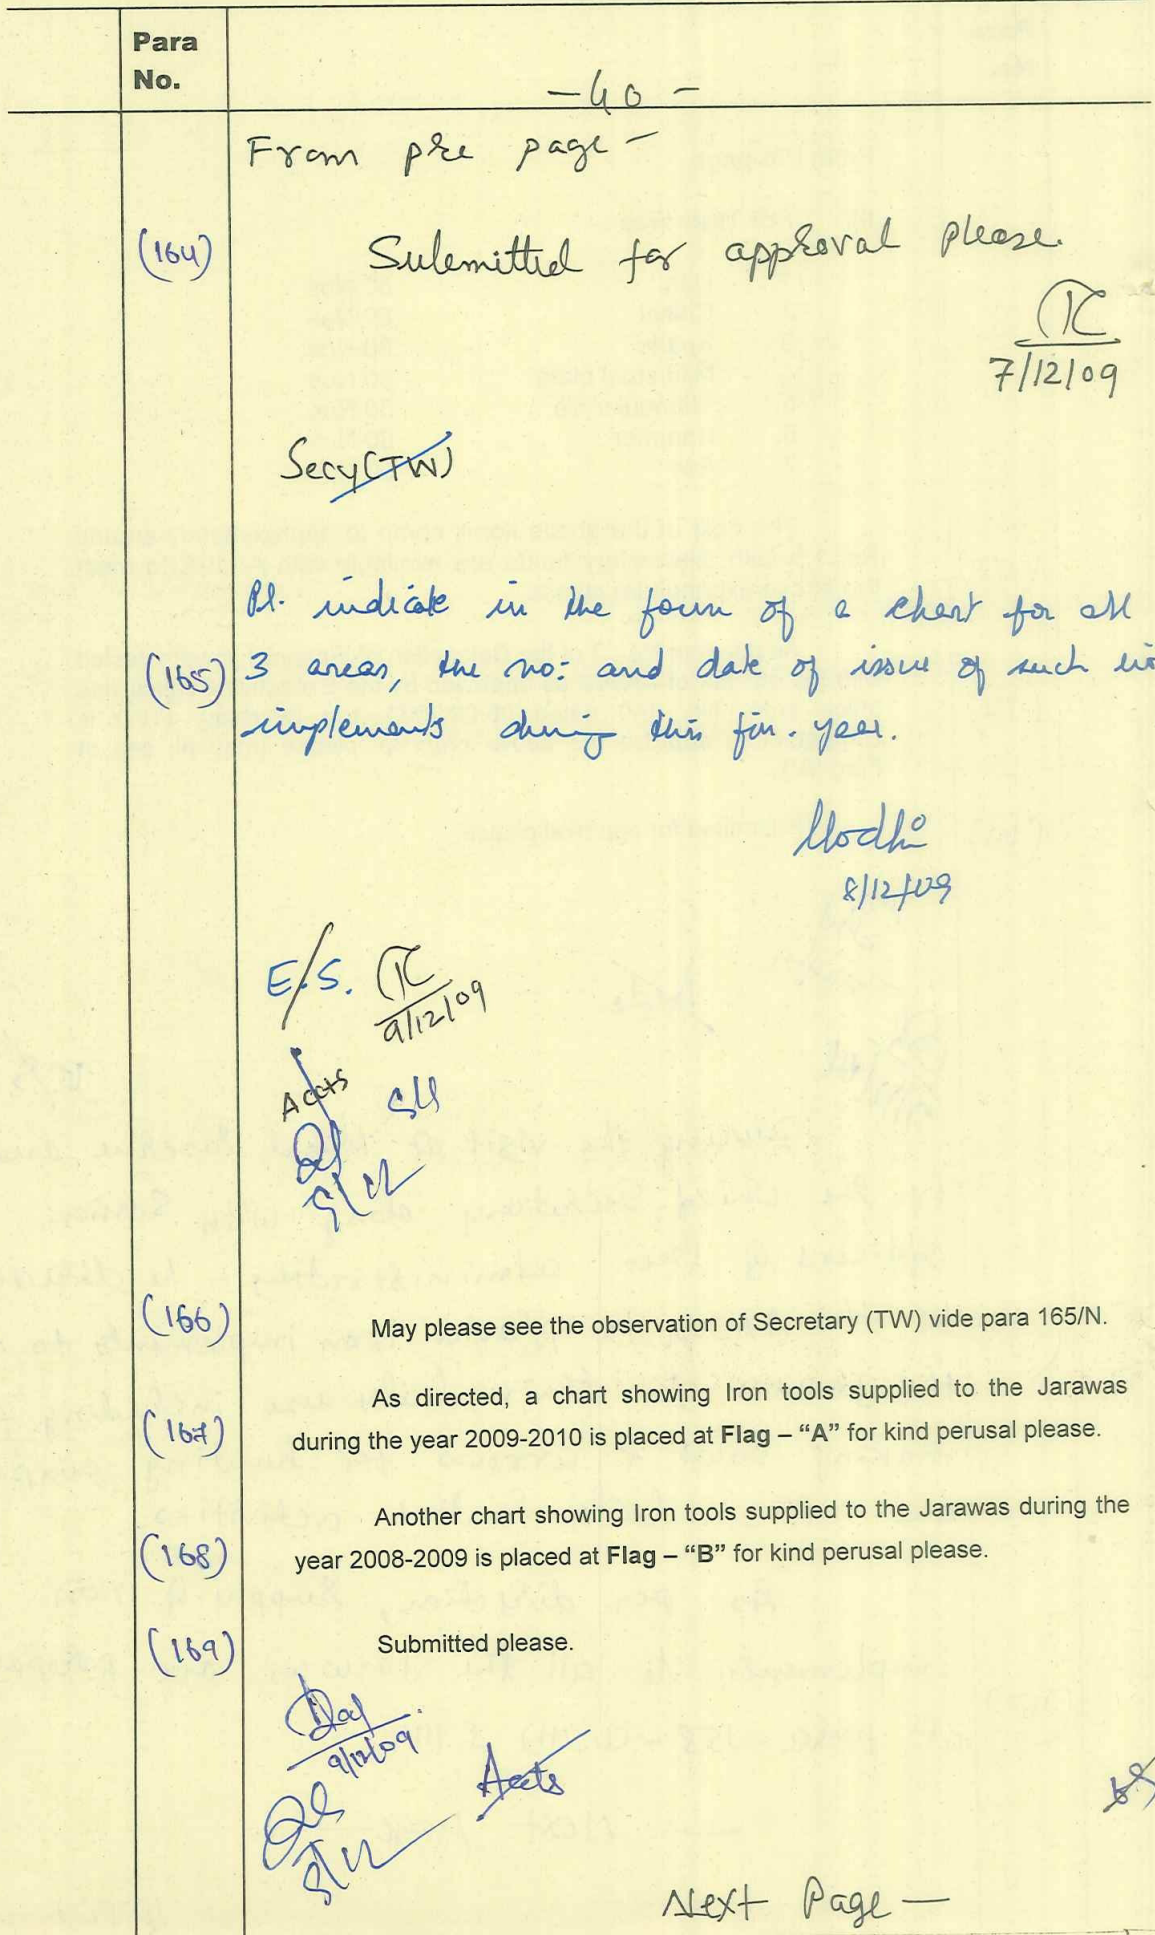 Para
No.
- 40 -
From pre page -
(164) Submitted for approval please.
7/12/09
Secy(TW)
Pl. indicate in the form of a chart for all
(165) 3 areas, the no: and date of issue of such
implements during this fin. year.
8/12/09
E.S.
9/12/09
Accts
(166) May please see the observation of Secretary (TW) vide para 165/N.
As directed, a chart showing Iron tools supplied to the Jarawas
(167) during the year 2009-2010 is placed at Flag – “A” for kind perusal please.
Another chart showing Iron tools supplied to the Jarawas during the
(168) year 2008-2009 is placed at Flag – “B” for kind perusal please.
(169) Submitted please.
9/12/09
Accts
Next Page —